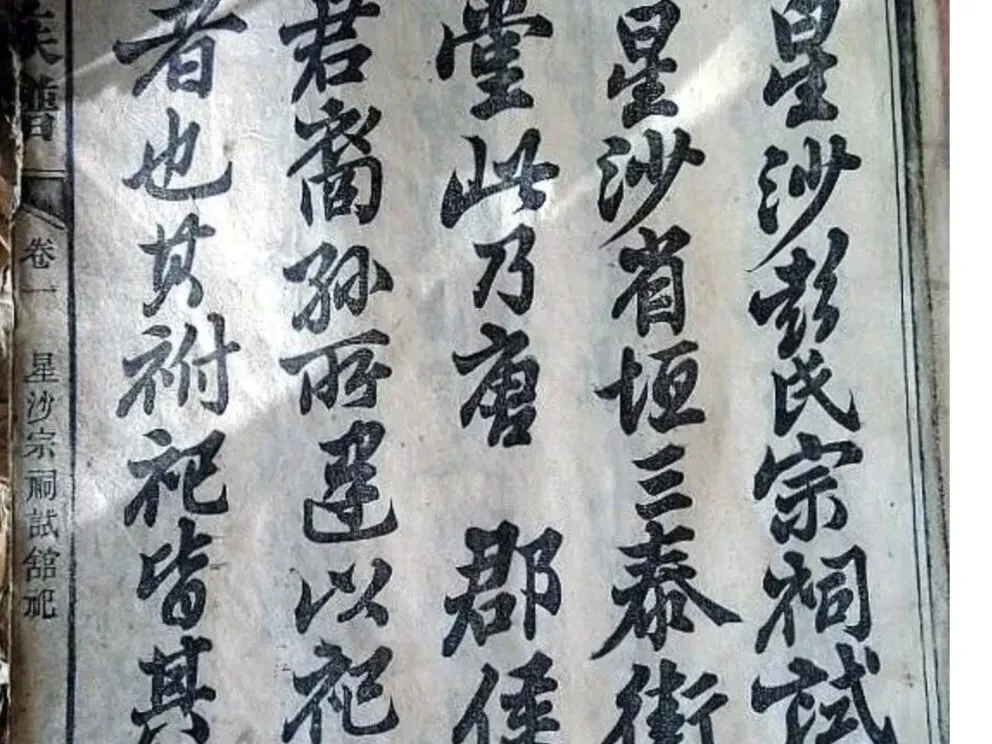 星沙彭氏宗祠試
星沙省垣三泰街
堂此乃唐 郡侯
君裔孫所建以祀
者也其祔祀皆其
族譜
卷一 星沙宗祠試館祀